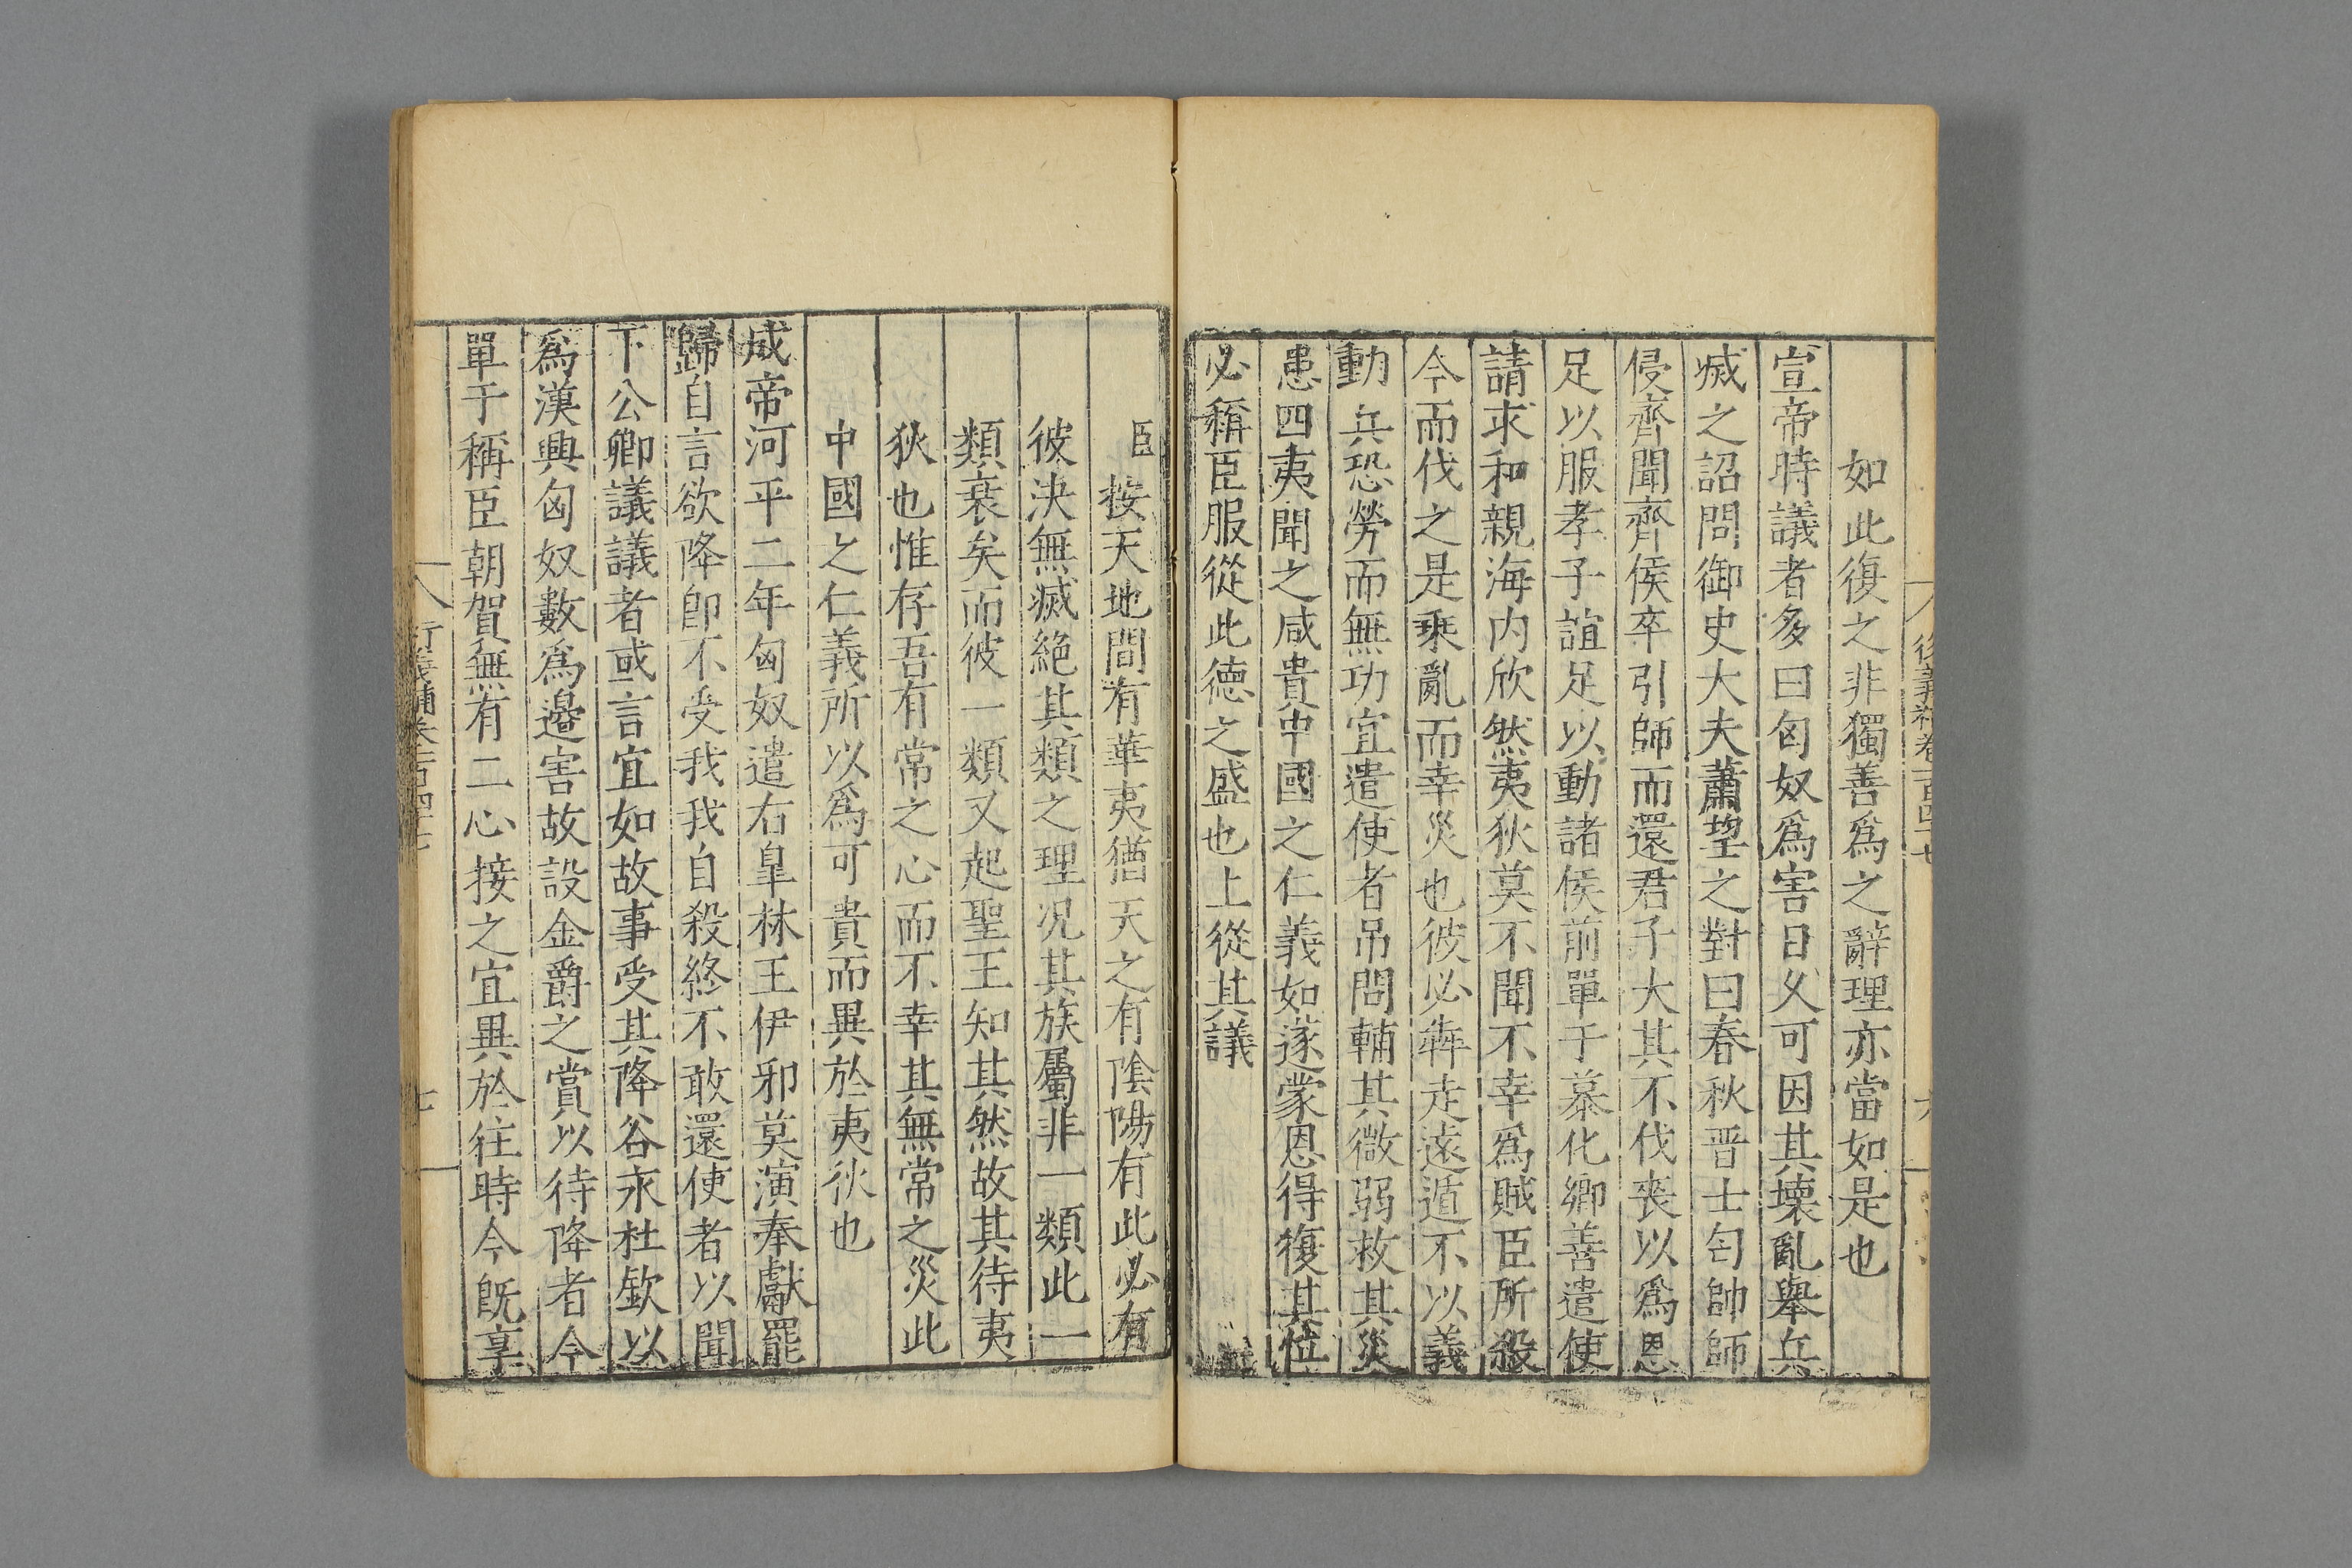 如此復之非獨善爲之辭理亦當如是也
宣帝時議者多曰匈奴爲害日久可因其壊亂舉兵
滅之詔問御史大夫蕭望之對曰春秋晋士匄帥師
侵齊聞齊侯卒引師而還君子大其不伐喪以爲恩
足以服孝子誼足以動諸侯前單于慕化鄉善遣使
請求和親海内欣然夷狄莫不聞不幸爲賊臣所殺
今而伐之是乗亂而幸災也彼必犇走遠遁不以義
動兵恐勞而無功宜遣使者吊問輔其微弱救其災
患四夷聞之咸貴中國之仁義如遂蒙恩得復其位
必稱臣服從此德之盛也上從其議
臣按天地間有華夷猶天之有陰陽有此必有
彼決無滅絶其類之理况其族屬非一類此一
類衰矣而彼一類又起聖王知其然故其待夷
狄也惟存吾有常之心而不幸其無常之災此
中國之仁義所以爲可貴而異於夷狄也
成帝河平二年匈奴遣右皐林王伊邪莫演奉獻罷
歸自言欲降卽不受我我自殺終不敢還使者以聞
下公卿議議者或言宜如故事受其降谷永杜欽以
爲漢興匈奴數爲邉害故設金爵之賞以待降者今
單于稱臣朝賀無有二心接之宜異於往時今既享
衍義補卷一百四十七
七